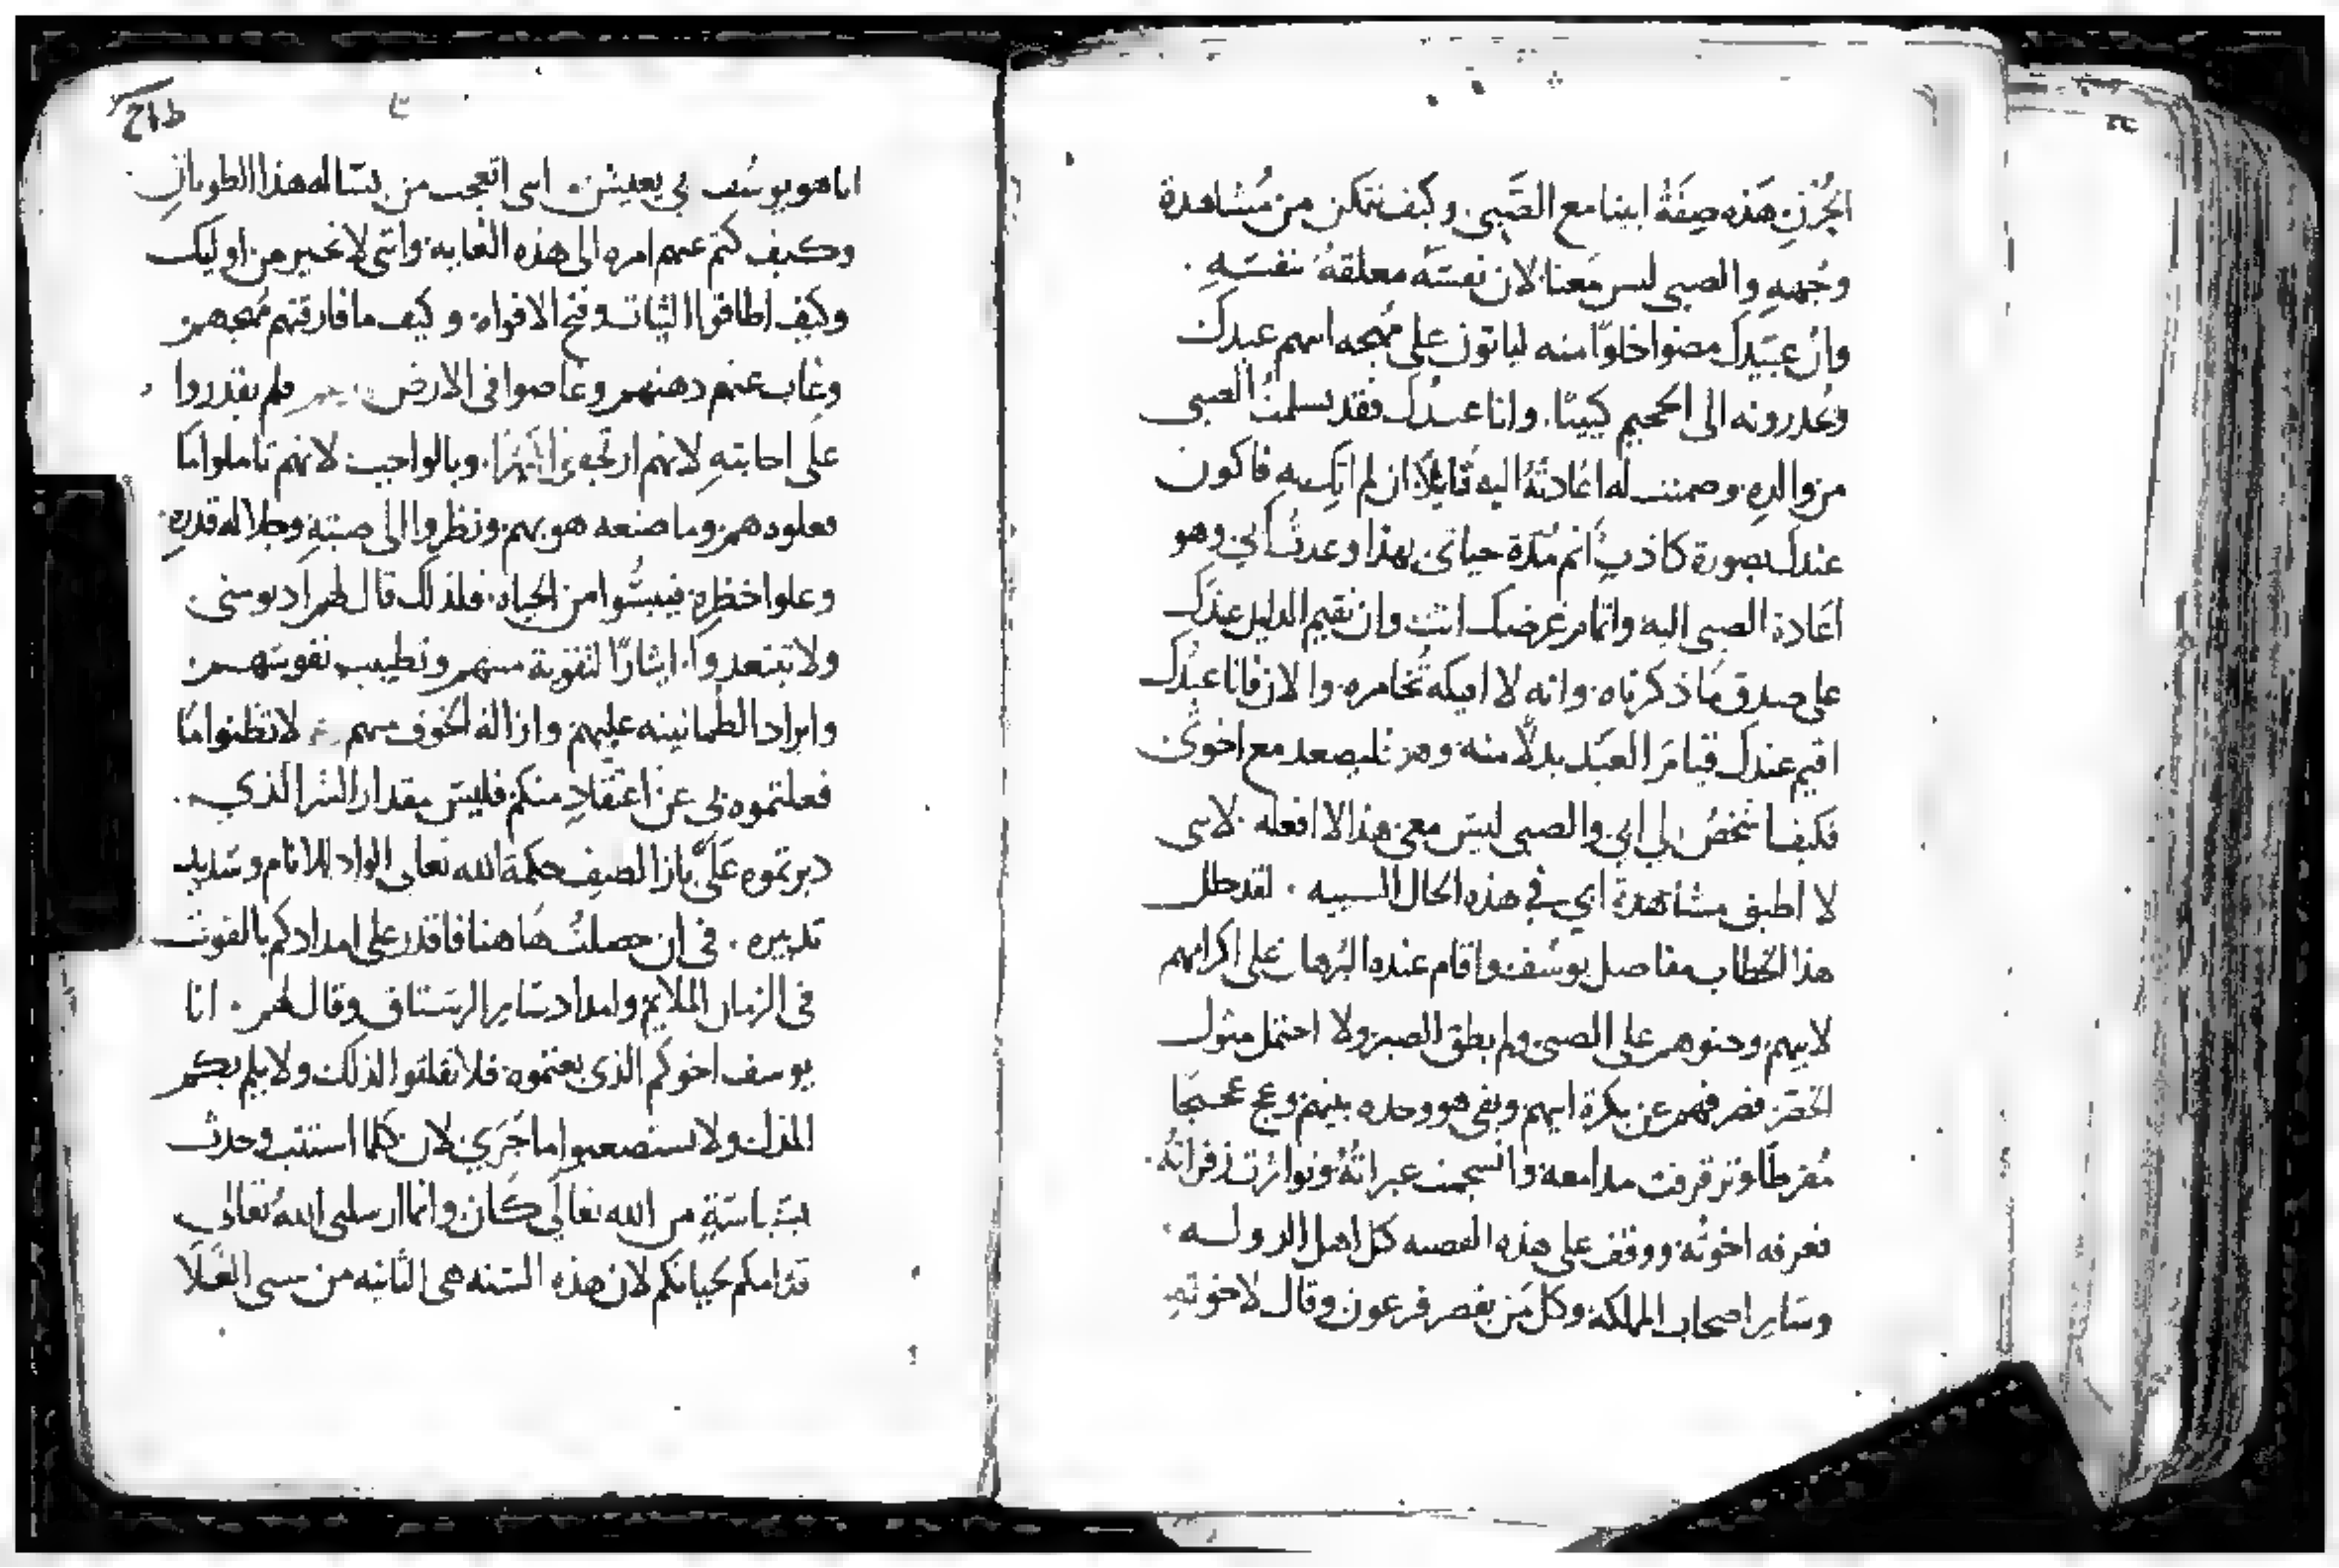 الحزن هذه صفة ابينا مع الصبي وكيف نتمكن من مشاهدة
وجهه والصبي ليس معنا لان نفسه معلقة بنفسه
وان عبيدك مضوا خلوا منه لياتون على مهجه ابيهم عبدك
ويحدرونه الى الجحيم كييبا وانا عبدك فقد تسلمت الصبي
من والده وضمنت له اعادته اليه قايلا ان لم اتك به فاكون
عندك بصورة كاذب اثم مدة حياتي بهذا وعدت ابي وهو
اعادة الصبي اليه وانما من غرضك انت وان نقيم الدليل عندك
على صدق ما ذكرناه وانه لا افيكه تخامره والان فانا عبدك
اقيم عندك قيام العبد بدلا منه وهو فليصعد مع اخوتي
فكيف اشخص الى ابي والصبي ليس معي هذا لا افعله لاني
لا اطيق مشاهدة ابي في هذه الحال السييه لقد حلل
هذا الخطاب مفاصل يوسف واقام عنده البرهان على اكرامهم
لابيهم وحنوهم على الصبي ولم يطق الصبر ولا احتمل مثول
الحضر فصرفهم عن بكرة ابيهم وبقي هو وحده بينهم وعج عجيجا
مفرطا وترقرقت مدامعه وانسجمت عبراته وتواترت زفراته
فعرفه اخوته ووقف على هذه القصه كل اهل الدوله
وساير اصحاب المملكة وكل من بقصر فرعون وقال لاخوته
انا هو يوسف ابي يعيش اني اتعجب من بسالة هذا الطوبان
وكيف كتم عنهم امره الى هذه الغايه وانني لاتحير من اوليك
وكيف اطاقوا الثبات وفتح الافواه وكيف ما فارقتهم مهجهم
وغاب عنهم ذهنهم وغاصوا في الارض فلم يقدروا
على اجابته لانهم ارتجوا وبالواجب لانهم تاملوا ما
فعلوه هم وما صنعه هو بهم ونظروا الى صيته وجلاله قدره
وعلو اخطره فييسوا من الحياه فلذلك قال لهم ادنو مني
ولا تبتعدوا ايثارا لتقوية منهم وتطييب نفوسهم
وايراد الطمانينه عليهم وازاله الخوف منهم لا تظنوا ما
فعلتموه بي عن اعتقاد منكم فليس مقدار الشر الذي
دبرتموه علي بازا لطيف حكمة الله تعالى الواد للانام وسديد
تدبيره في ان حصلت هاهنا فاقدر على امدادكم بالقوت
في الزمان الملايم وامداد ساير الرستاق وقال لهم انا
يوسف اخوكم الذي بعتموه فلا تقلقوا لذلك ولا يلم بكم
الحزن ولا تستصعبوا ما جري لان كلما استتب وحدث
بسياسة من الله تعالى كان وانما ارسلني الله تعالى
قدامكم لحياتكم لان هذه السنه هي الثانيه من سني الغلا